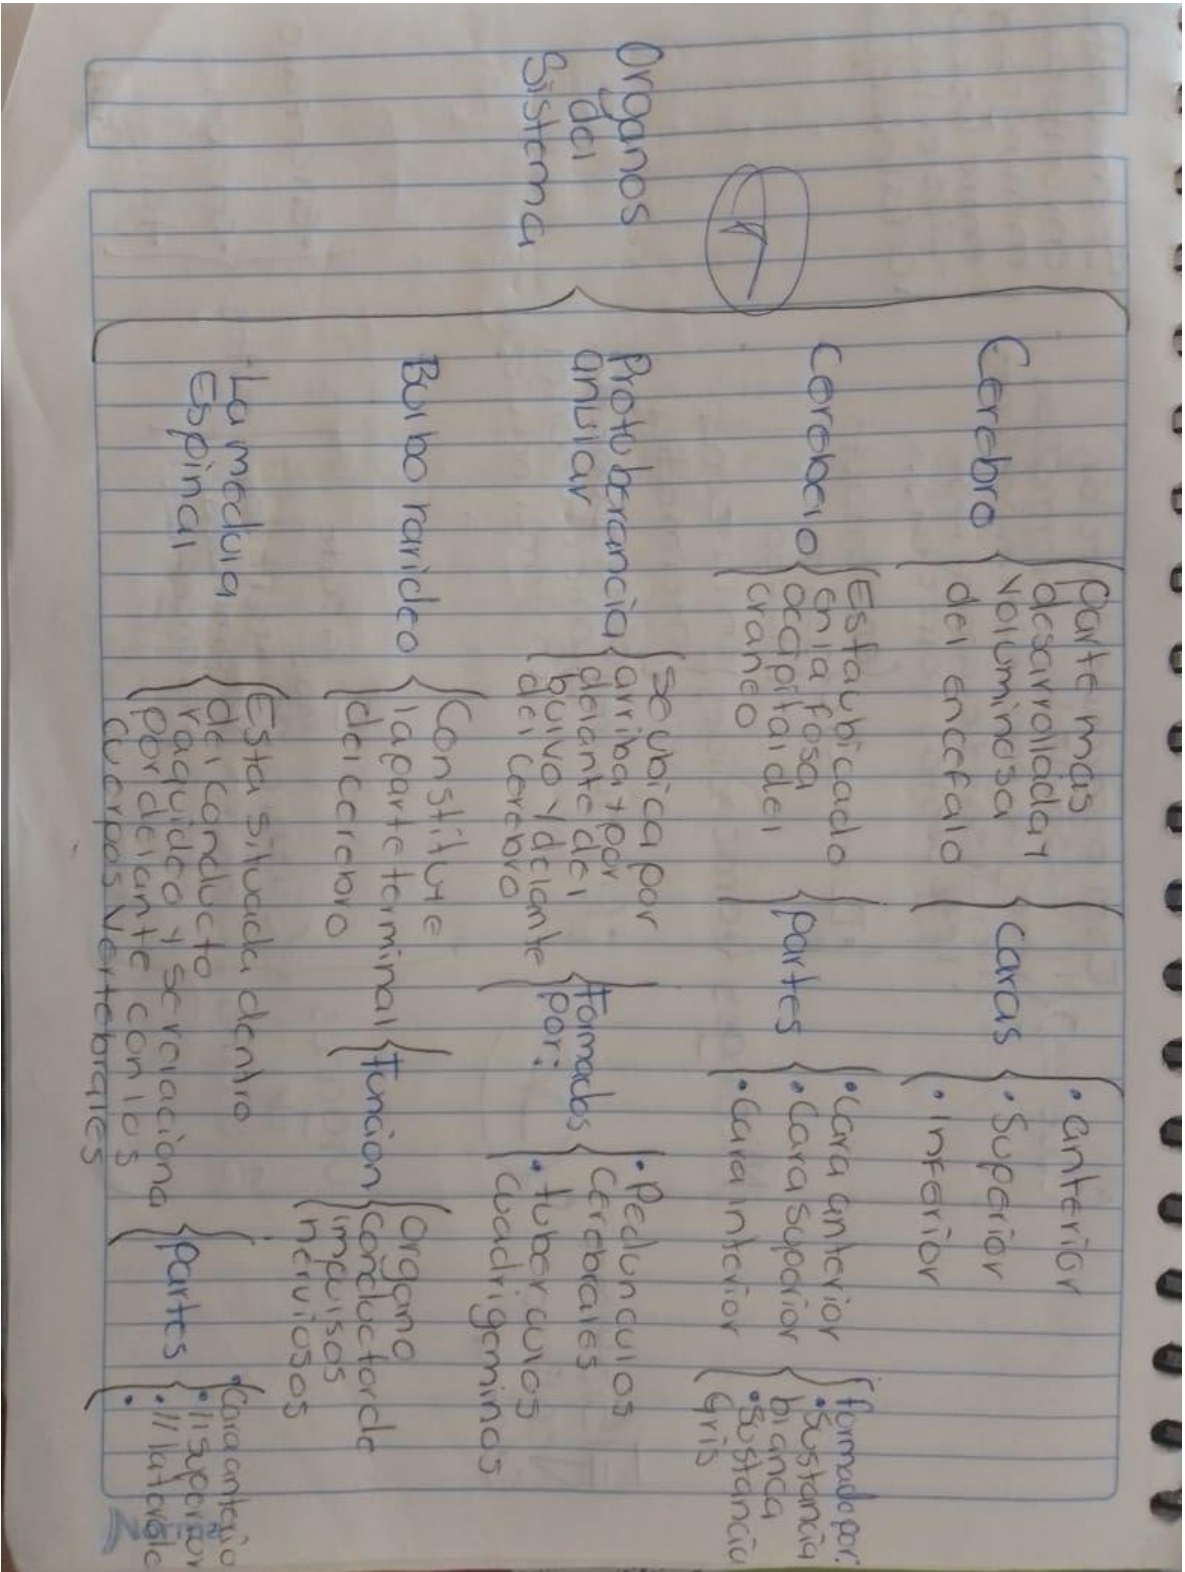 Organos
del
Sistema
Cerebro
parte mas
desarrollada y
voluminosa
del encefalo
caras
• anterior
• Superior
• Inferior
Cerebelo
Esta ubicado
en la fosa
occipital del
craneo
partes
• Cara anterior
• Cara superior
• Cara interior
formado por:
• Sustancia
blanca
• Sustancia
Gris
Protuberancia
anular
se ubica por
arriba y por
delante del
bulvo y delante
del cerebro
Formados
por:
• Pedunculos
Cerebrales
• tuberculos
cuadrigeminos
Bulbo rarideo
Constituye
la parte terminal
del cerebro
Función
Organo
conductor de
impulsos
nerviosos
La medula
Espinal
Esta situada dentro
del conducto
raquideo y se relaciona
por delante con los
cuerpos vertebrales
partes
• Cara anterio
• // superior
• // laterale